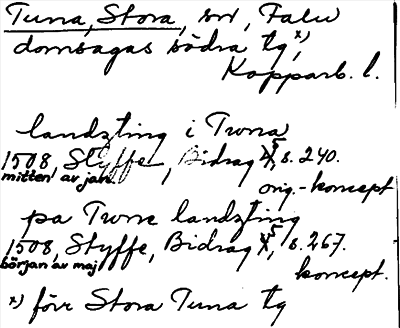 Tuna, Stora, sn, Falu
domsagas södra tg, x)
Kopparb. l.
landzting i Twna
1508, Styffe, Bidrag 5, s. 240.
mitten av jan.
orig.-koncept
pa Twne landzting
1508, Styffe, Bidrag 5, s. 267.
början av maj
koncept.
x) förr Stora Tuna tg